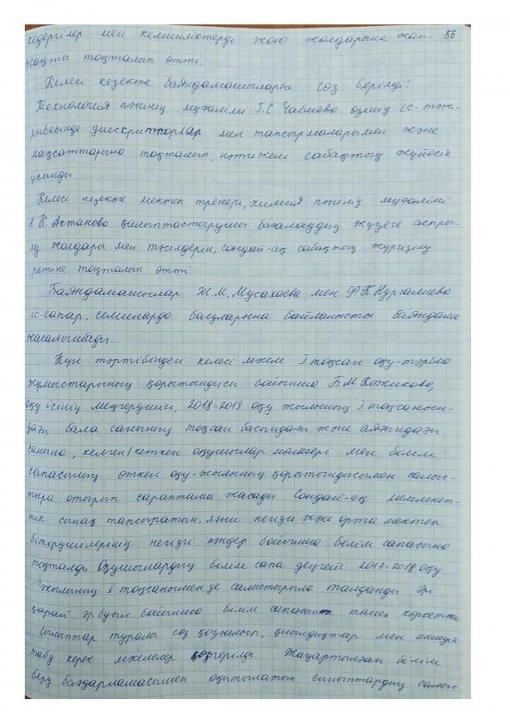 кедергілер мен келіспеушіліктерді жою жолдарына жан- 56
жақты тоқталып өтті.
Келесі кезекте баяндамашыларға сөз берілді:
Технология пәнінің мұғалімі Г.С Чабиева өзінің іс-тәж-
рибесінде дискрипторлар мен тапсырмаларымен және
мақсаттарына тоқталып, нәтижелі сабақтың жүйесін
ұсынды
Келесі кезекте мектеп тренері, химия пәнінің мұғалімі
К Актанова қалыптастырушы бағалаудың жүзеге асыры-
лу жолдары мен тәсілдерін, сондай-ақ сабақтың жүргізілу
ретіне тоқталып өтті
Баяндамашылар Ж.М.Мусахаева мен Ф.К.Нургалиева
іс-сапар, семинарда байланысты баяндама
жасалынбады.
Күн тәртібіндегі келесі мәселе I тоқсан оқу-тәрбие
жұмыстарының қорытындысы бойынша Б.М Кожикова,
оқу ісінің меңгерушісі, 2018-2019 оқу жылының I тоқсанын-
дағы бала санының тоқсан басындағы және аяғындағы
санына, келген/кеткен оқушылар мәселері мен білім
сапасының өткен оқу-жылының қорытындысымен салыс-
тыра отырып сараптама жасады Сондай-ақ мемлекет-
тік сынақ тапсыратын, яғни негізгі және орта мектеп
бітірушілерінің негізгі пәндер бойынша білім сапасына
тоқталды Оқушылардың білім сапа деңгейі 2017-2018 оқу
жылының I тоқсанымен де салыстырыла талданды
қарай әр буын бойынша білім сапасын төмен көрсеткен
сыныптар туралы сөз қозғалып, мен шешуін
табу керек мәселелер көтерілді Жаңартылған білім
беру бағдарламасымен оқытылатын сыныптардың сапасы